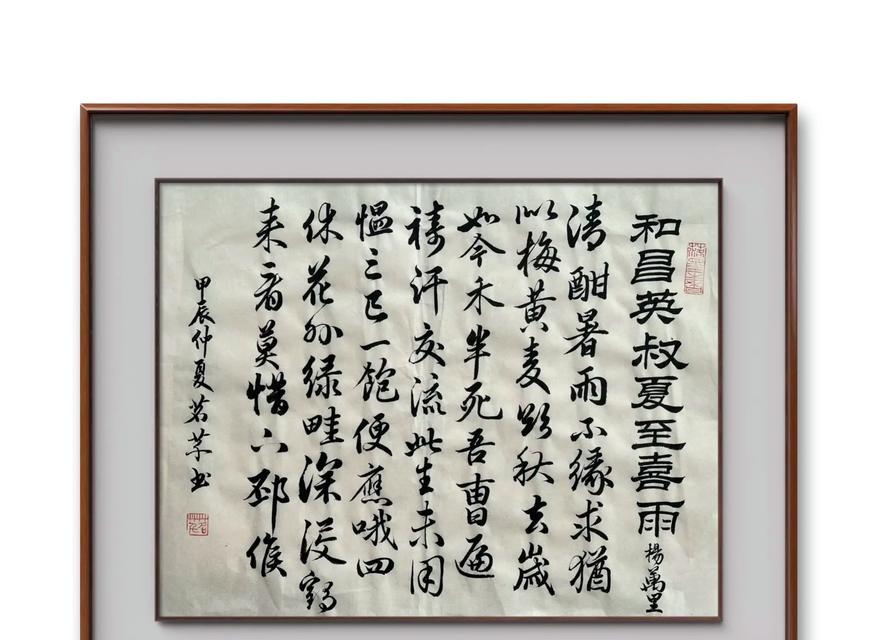 和昌英叔夏至喜雨 楊萬里
清酣暑雨不緣求猶
似梅黄麦欲秋去歲
如今禾半死吾曹遍
禱汗交流此生未用
愠三已一飽便應哦四
休花外绿畦深没鶴
来看莫惜下邳侯
甲辰仲夏茗芊书